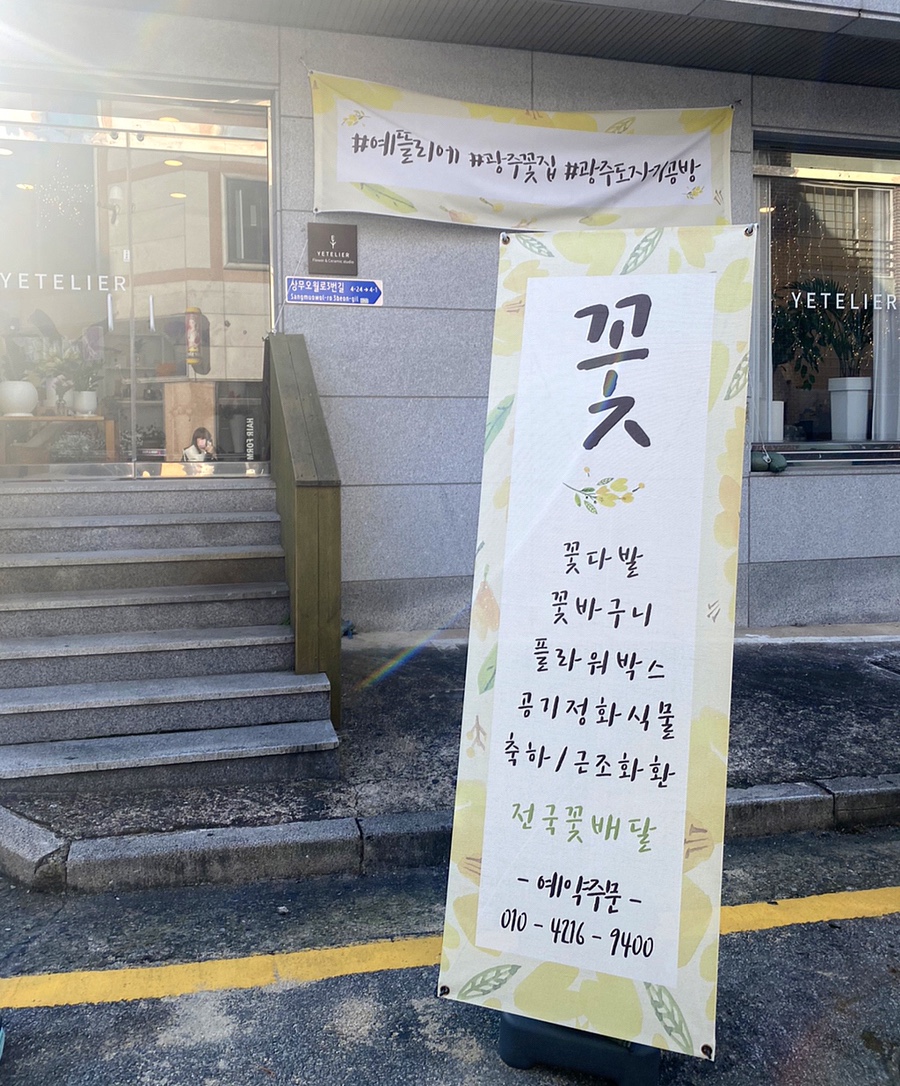 #예플리에 #광주꽃집 #광주도자기공방
YETELIER
Flower & Ceramic studio
상무오월로3번길 4-24→4-1
Sangmuowol-ro 3beon-gil
YETELIER
YETELIER
HAIR FORM
꽃
꽃다발
꽃바구니
플라워박스
공기정화식물
축하/근조화환
전국꽃배달
- 예약주문 -
010 - 4216 - 9400